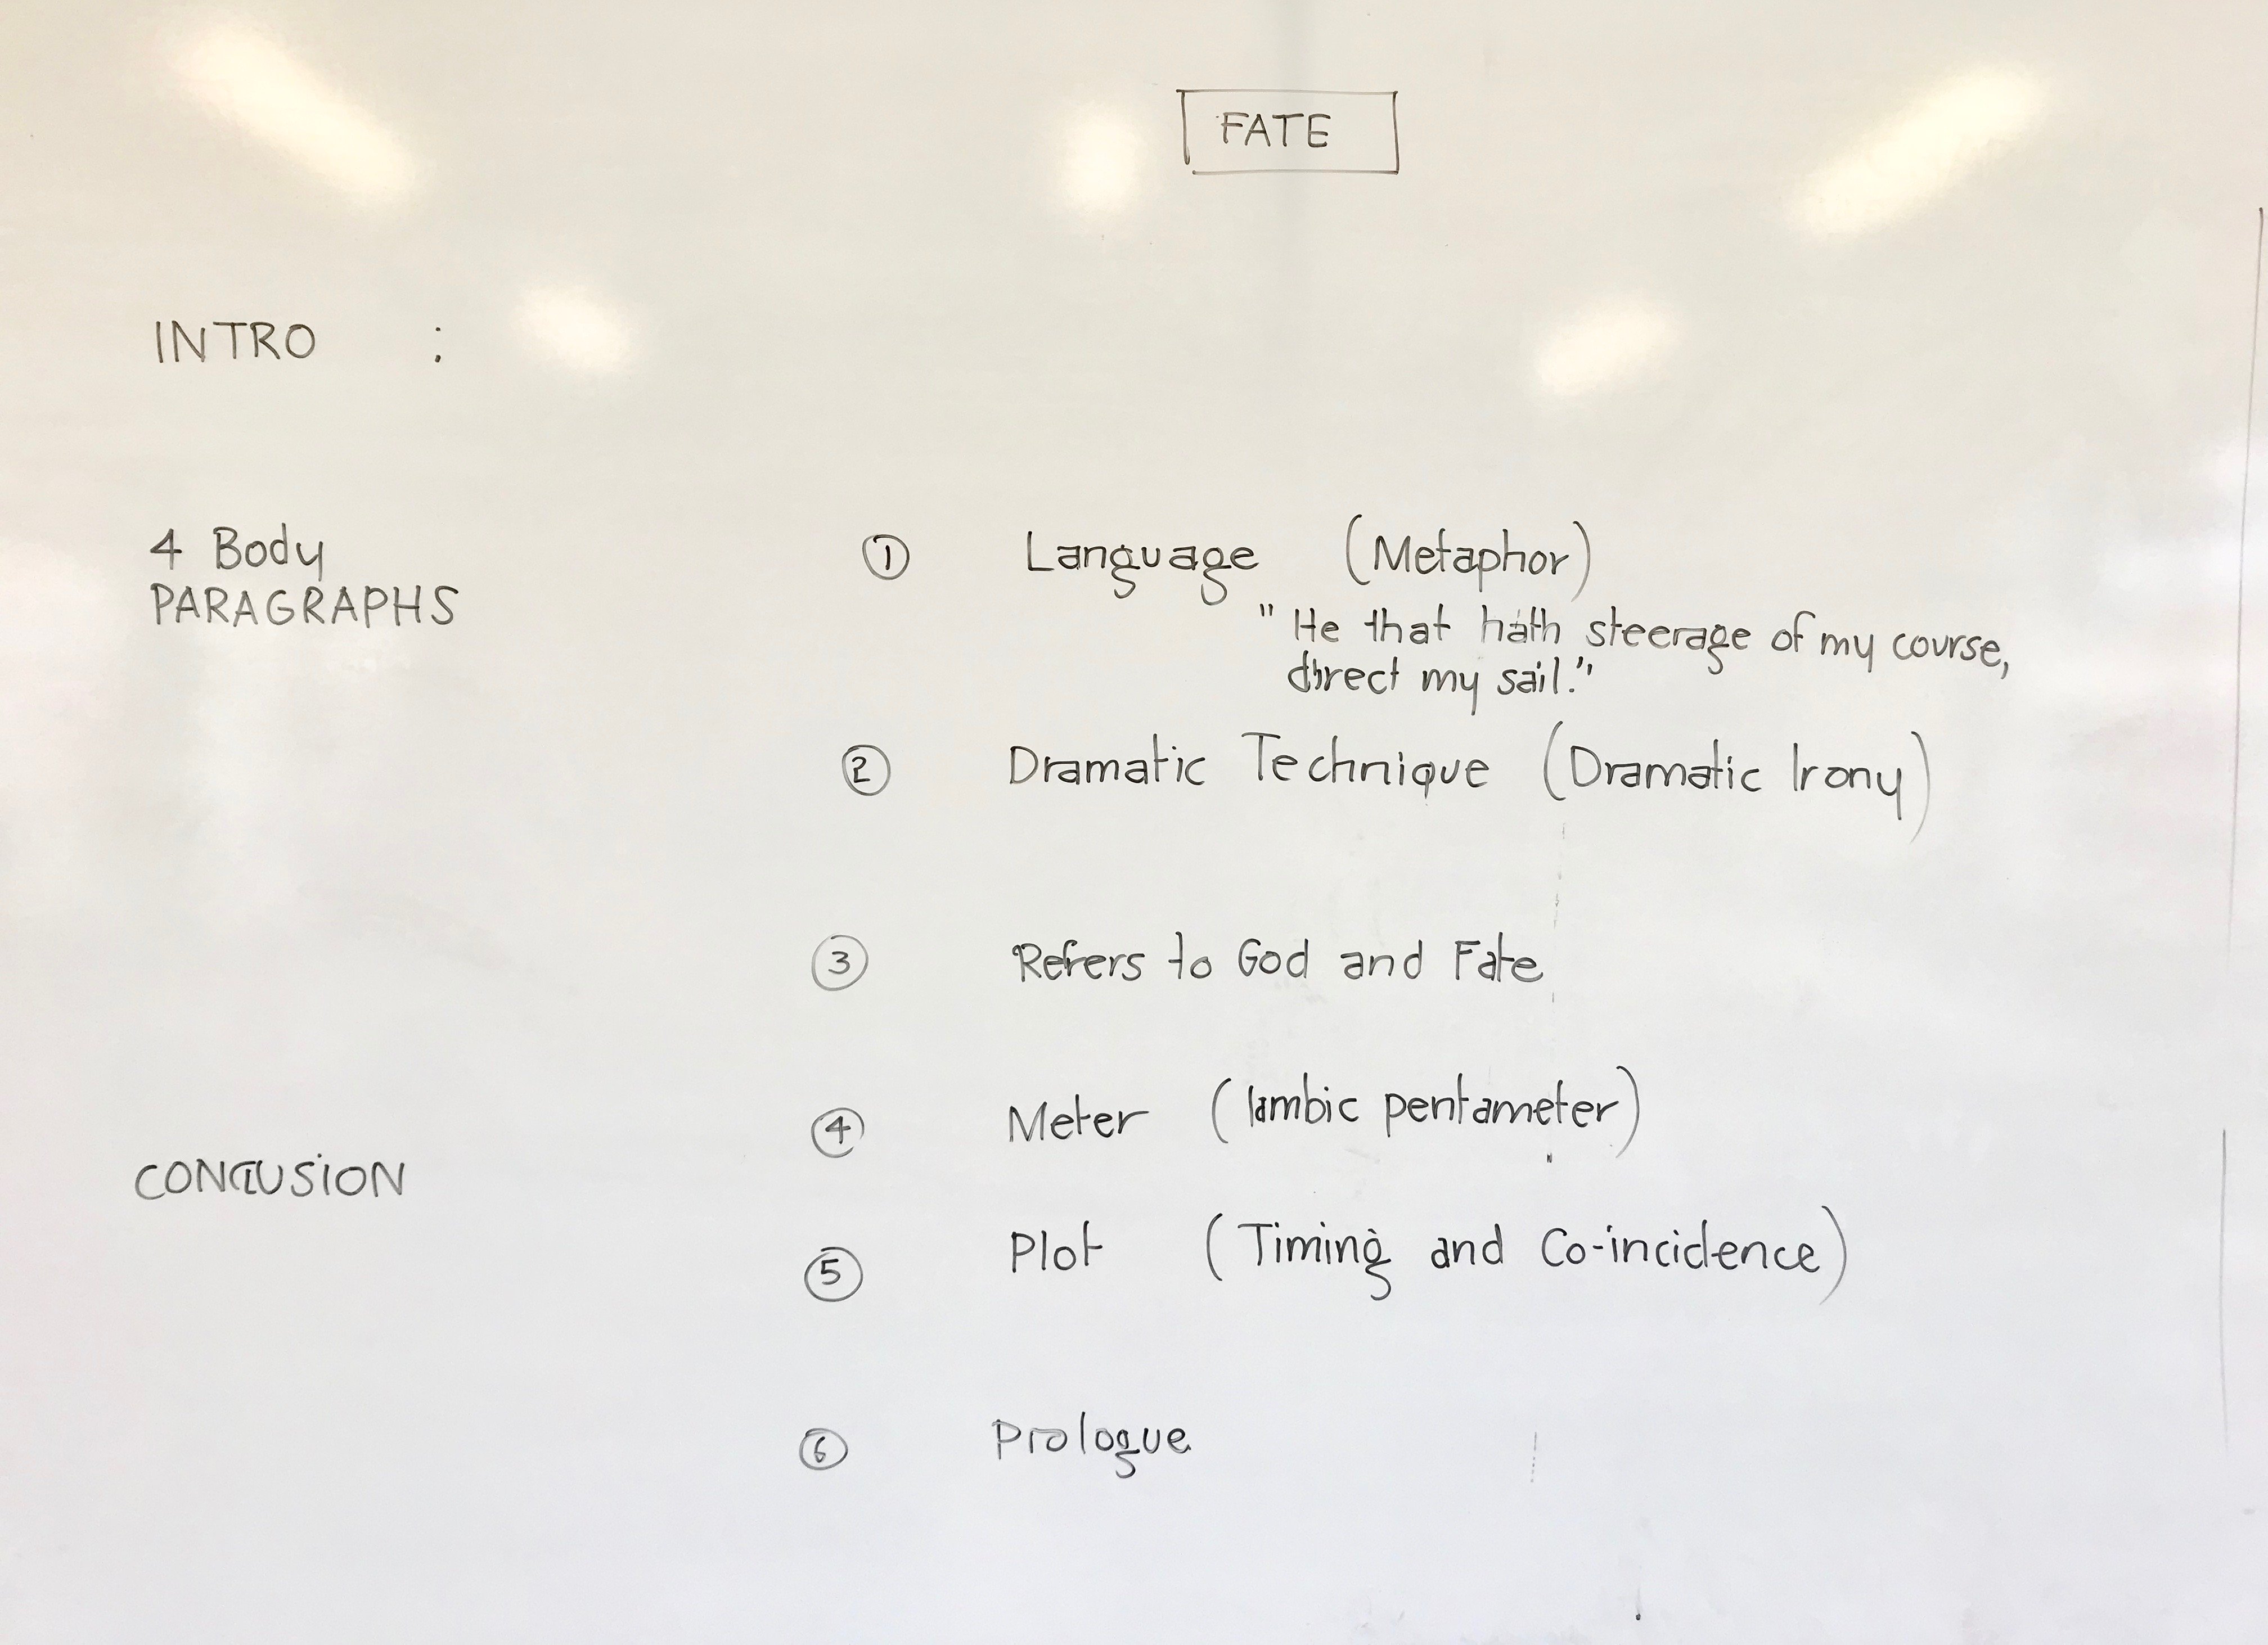 FATE
INTRO :
4 Body
PARAGRAPHS
① Language (Metaphor)
" He that hath steerage of my course,
direct my sail."
② Dramatic Technique (Dramatic Irony)
③ Refers to God and Fate
④ Meter (Iambic pentameter)
CONCLUSION
⑤ Plot (Timing and Co-incidence)
⑥ Prologue